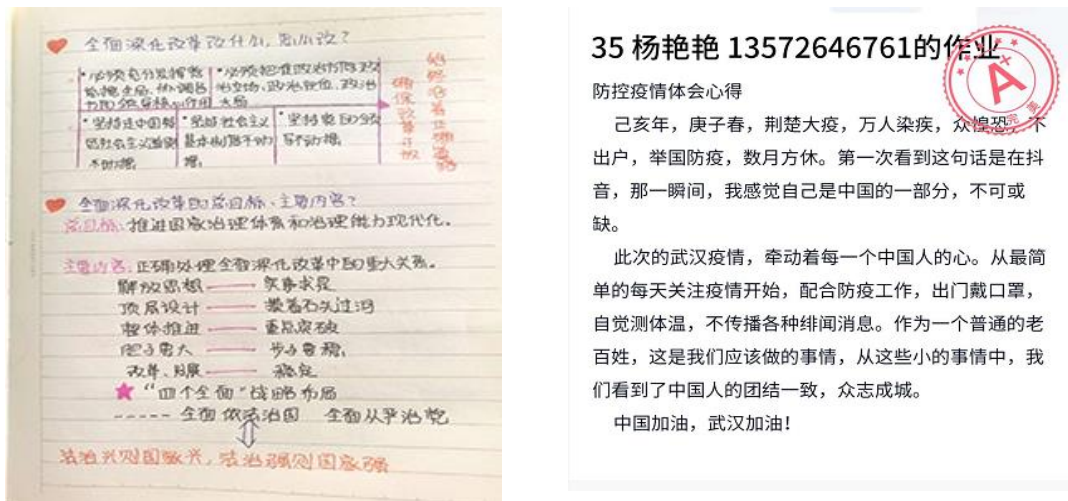 全面深化改革改什么,怎么改?
·必须充分发挥党总揽全局、协调各方的领导核心作用
·必须把准政治方向、政治立场、政治定位、政治大局
·坚持走中国特色社会主义道路不动摇
·坚持社会主义基本制度不动摇
·坚持党的领导不动摇
确保改革正般
始终沿着正确道路
全面深化改革的总目标、主要内容?
总目标:推进国家治理体系和治理能力现代化。
主要内容:正确处理全面深化改革中的重大关系。
解放思想——实事求是
顶层设计——摸着石头过河
整体推进——重点突破
胆子要大——步子要稳
改革、发展——稳定
★“四个全面”战略布局
-----全面依法治国 全面从严治党
法治兴则国家兴,法治强则国家强
35 杨艳艳 13572646761的作业
A+
完美
防控疫情体会心得
己亥年,庚子春,荆楚大疫,万人染疾,众惶恐,不
出户,举国防疫,数月方休。第一次看到这句话是在抖
音,那一瞬间,我感觉自己是中国的一部分,不可或
缺。
此次的武汉疫情,牵动着每一个中国人的心。从最简
单的每天关注疫情开始,配合防疫工作,出门戴口罩,
自觉测体温,不传播各种绯闻消息。作为一个普通的老
百姓,这是我们应该做的事情,从这些小的事情中,我
们看到了中国人的团结一致,众志成城。
中国加油,武汉加油!